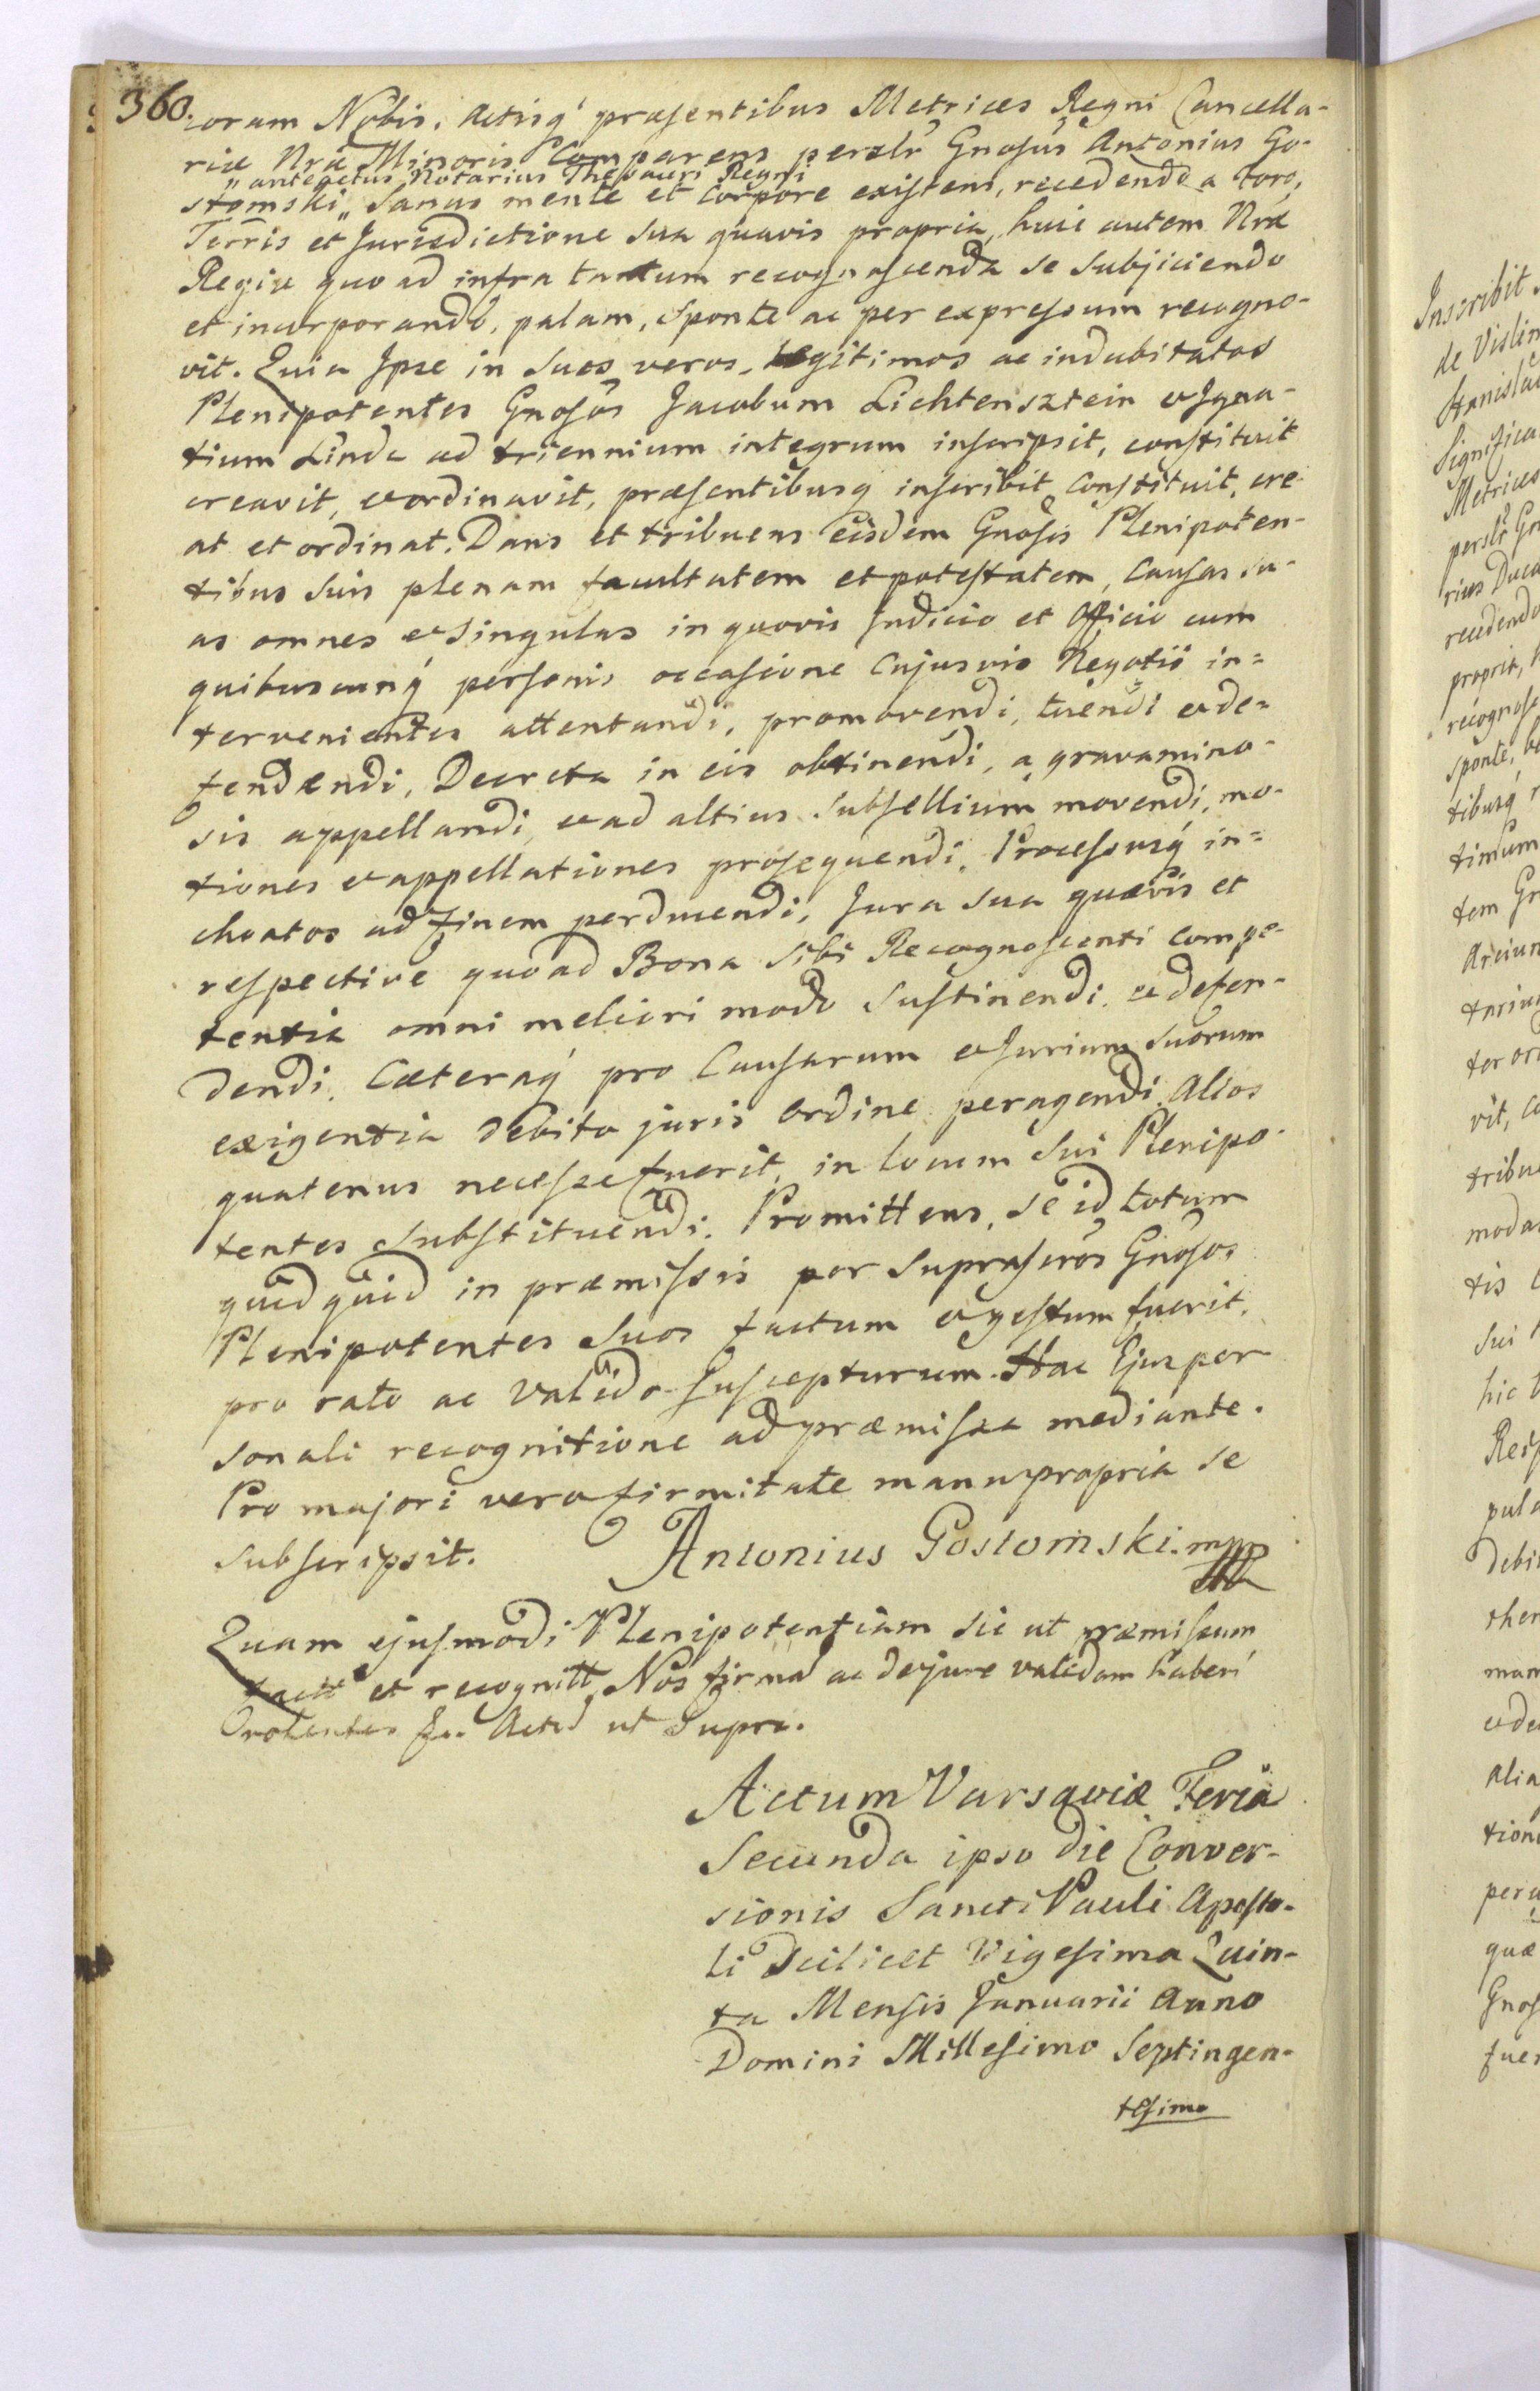 360.
coram Nobis, Actisq́ præsentibus Metrices Regni Cancella-
riæ Nrǽ Minoris Comparens persltr Gnosus Antonius Go-
„antegetus Notarius Thesauri Regni
stomski„ Sanus mente et Corpore existens, recedendo a toro,
Terris et Jurisdictione sua quavis propria, huic autem Nræ
Regiæ quo ad infra tantum recognoscenda se subjiciendo
et incorporando, palam, sponte ac per expressum recogno-
vit. Quia Ipse in suos veros, legitimos ac indubitatos
Plenipotentes Gnosos Jacobum Lichtensztein et Igna-
tium Linde ad triennium integrum inscripsit, constituit
creavit, et ordinavit, præsentibusq inscribit, Constituit, cre
at et ordinat. Dans et tribuens Eisdem Gnosis Plenipoten-
tibus suis plenam facultatem et potestatem, Causas su-
as omnes et singulas in quovis Judicio et Officio cum
quibuscunq́ personis occasione Cujusvis Negotii in=
tervenientes attentandi, promovendi, tuendi et de=
fendendi, Decreta in eis obtinendi, a gravamino-
sis appellandi, et ad altius Subsellium movendi, mo-
tiones et appellationes prosequendi, Processusq́ in=
choatos ad finem perducendi, Jura sua quævis et
respective quoad Bona sibi Recognoscenti compe-
tentia omni meliori modo sustinendi, et defen-
dendi, Cæteraq́ pro Causarum et Jurium suorum
exigentia debito juris ordine peragendi, Alios
quatenus necesse fuerit, in locum sui Plenipo-
tentes substituendi. Promittens, se id totum
quid quid in præmissis per suprascros Gnosos
Plenipotentes suos factum et gestum fuerit,
pro rato ac valido suscepturum. Hac Ejus per
sonali recognitione ad præmissa mediante.
Pro majori vero firmitate manu propria se
subscripsit. Antonius Gostomski. mpp
Quam ejusmodi Plenipotentiam sic ut præmissum
et recognitt Nos firmā ac de jure validam haberi
ut supra.
Actum Varsaviæ Feria
Secunda ipso die Conver-
sionis Sancti Pauli Aposto-
li Scilicet Vigesima Quin-
ta Mensis Januarii Anno
Domini Millesimo Septingen-
tesimo
Inscribit
de Vislin
Stanislaus
Significa
Metrices
persltr Gn
rius Duca
recedendo
propria, h
recognose
sponte,
tibusq́ r
timum
tem Gn
Arciun
ter ord
vit, co
tribue
moda
tis
sui
hic
Resp
pala
debi
man
et de
alia
tion
pera
quæ
Gnos
fuer